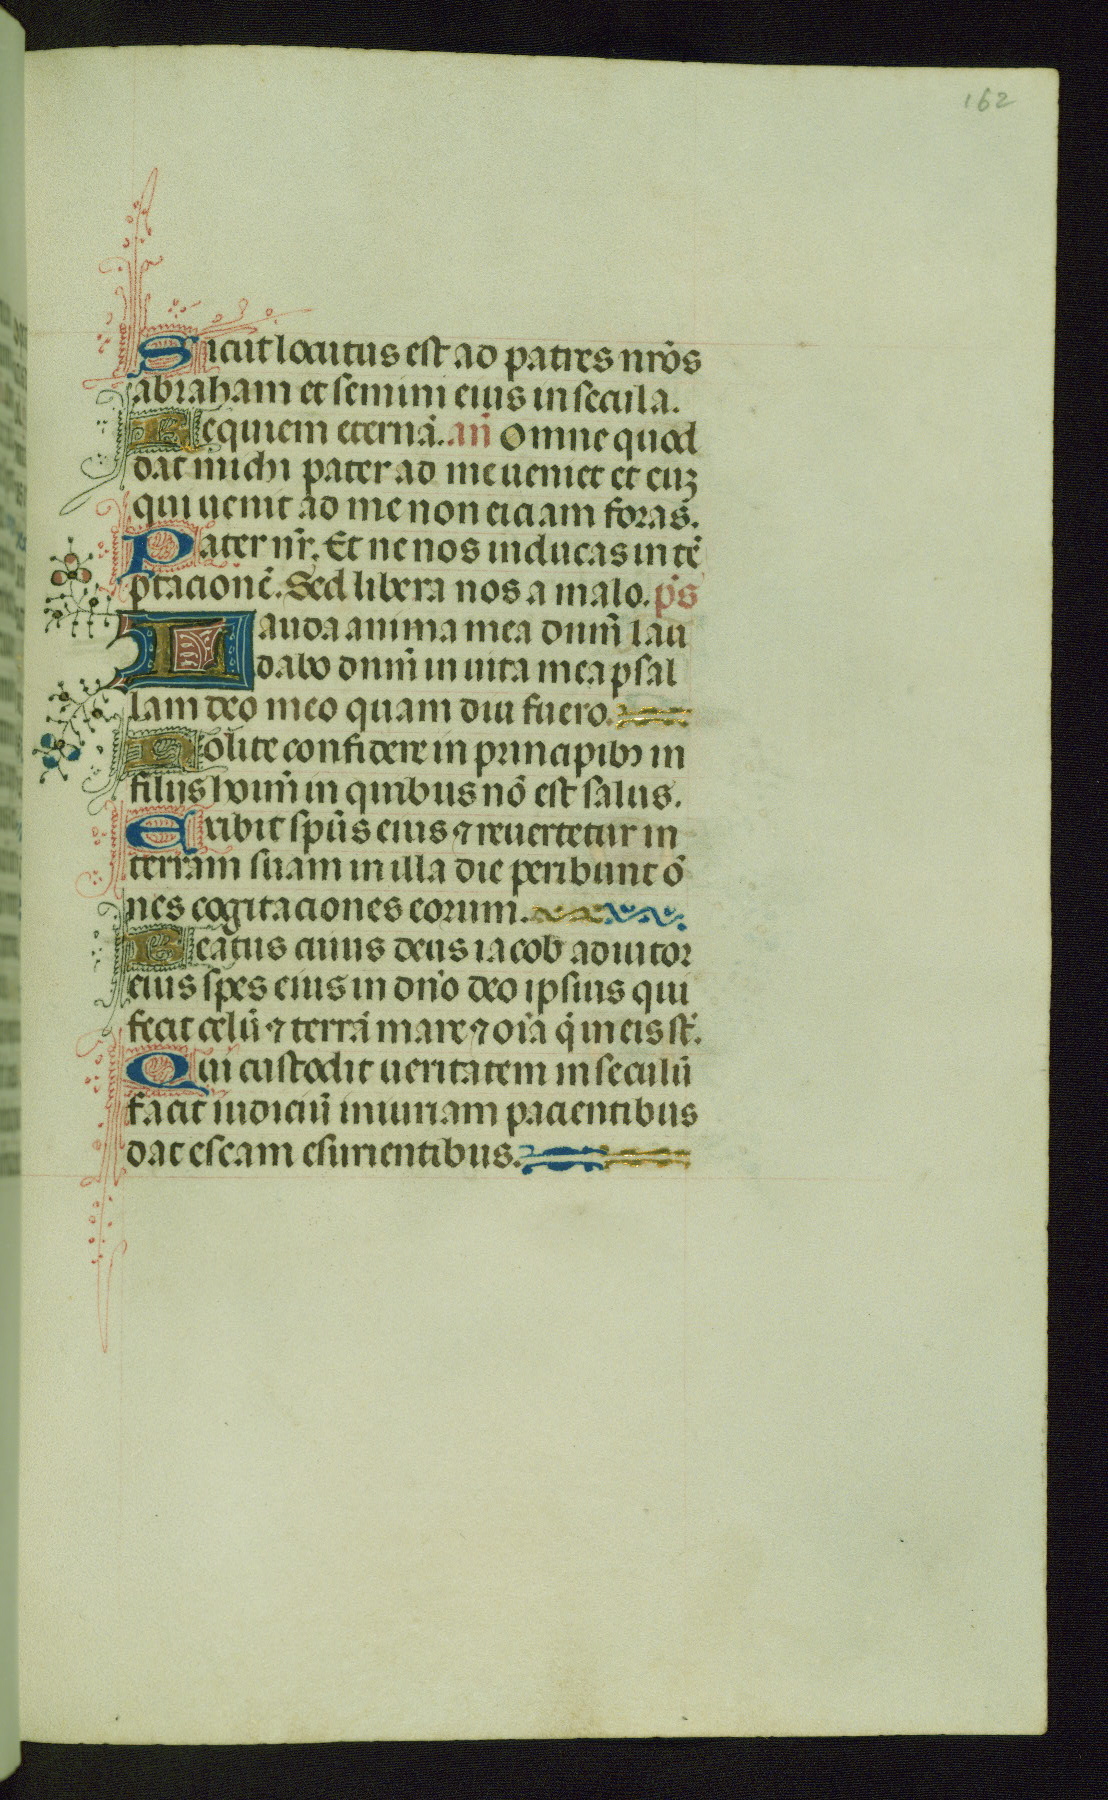 162
Sicut locutus est ad patres nr̃os
abraham et semini eius in secula.
Requiem eternã. añ Omne quod
dat michi pater ad me ueniet et euȝ
qui uenit ad me non eiciam foras.
Pater nr̃. Et ne nos inducas in tẽ
ptacionẽ. Sed libera nos a malo. p̃s
Lauda anima mea dnm̃ lau
dabo dnm̃ in uita mea psal
lam deo meo quam diu fuero.
Nolite confidere in principibꝫ in
filijs hoım̃ in quibus nõ est salus.
Exibit spũs eius ⁊ reuertetur in
terram suam in illa die peribunt õ
nes cogitaciones eorum.
Beatus cuius deus iacob adiutor
eius spes eius in dño deo ipsius qui
fecit celũ ⁊ terrã mare ⁊ oĩa q̃ in eis st̃.
Qui custodit ueritatem in seculũ
facit iudiciũ iniuriam pacientibus
dat escam esurientibus.